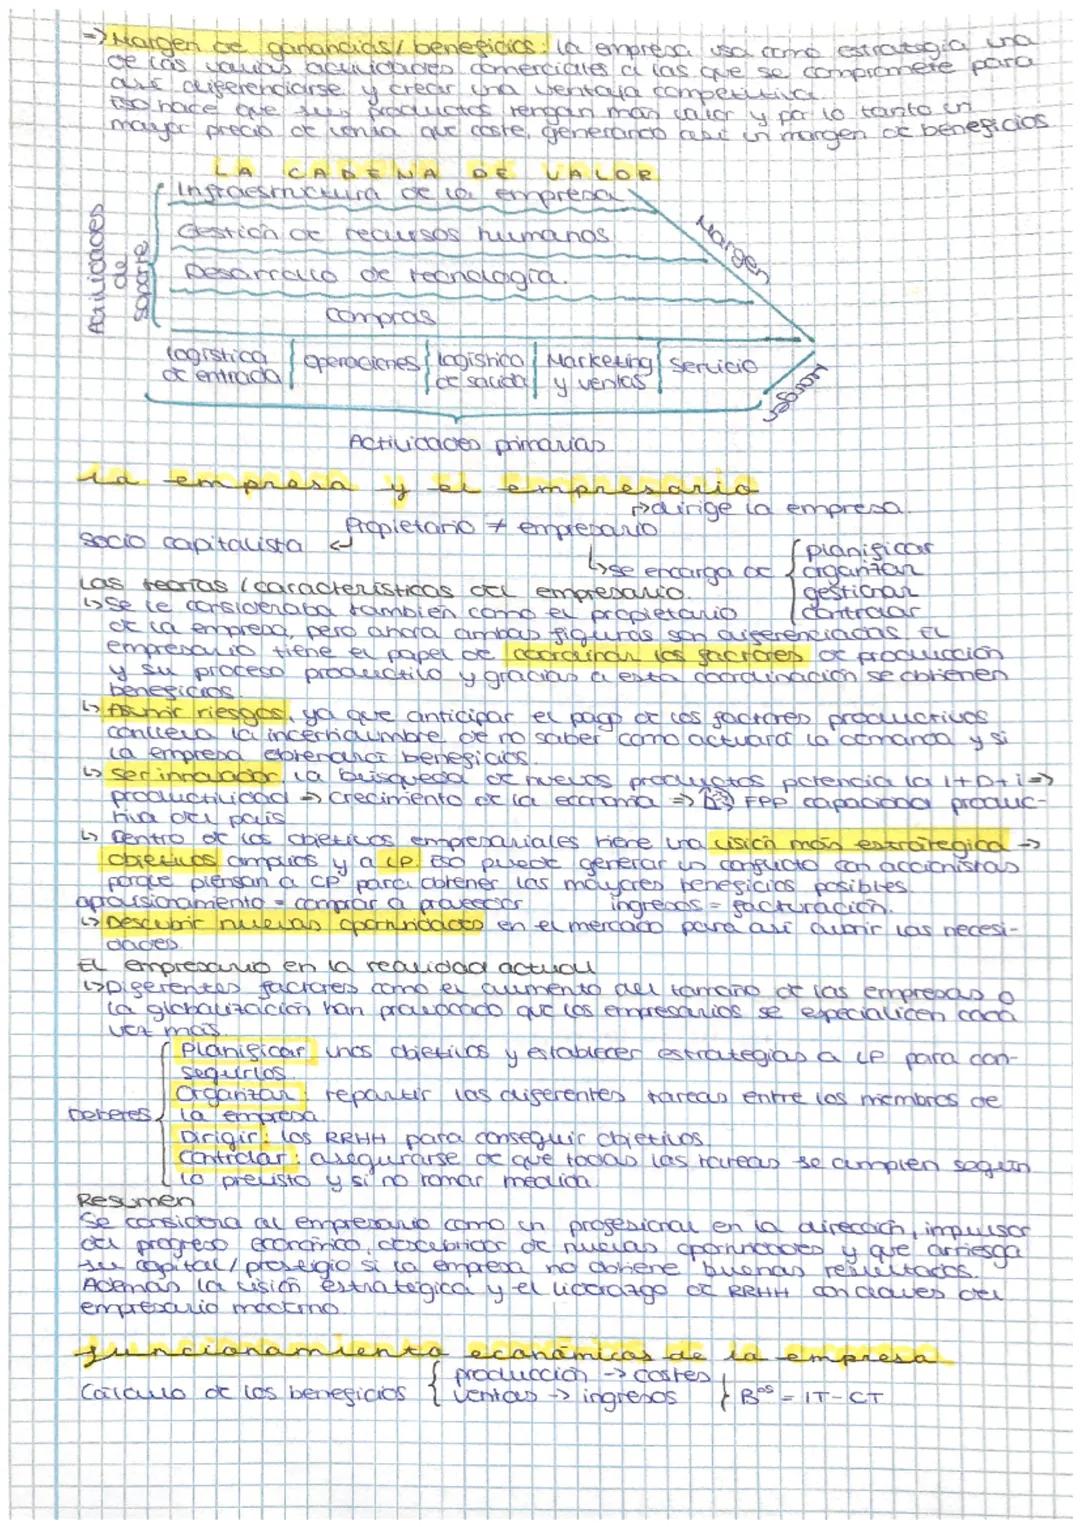 => Margen de ganancias/beneficios: la empresa usa como estrategia una
de las varias actividades comerciales a las que se compromete para
así diferenciarse y crear una ventaja competitiva.
Eso hace que sus productos tengan más valor y por lo tanto un
mayor precio de venta que coste, generando así un margen de beneficios
LA CADENA DE VALOR
Actividades de soporte
Infraestructura de la empresa
Gestión de recursos humanos
Desarrollo de tecnología.
compras
Margen
logística de entrada | operaciones | logística de salida | Marketing y ventas | servicio
Margen
Actividades primarias
La empresa y el empresario
↱ dirige la empresa.
Propietario ≠ empresario
socio capitalista ↲
↳ se encarga de { planificar
organizar
gestionar
controlar
Las teorías/características del empresario.
↳ Se le consideraba también como el propietario
de la empresa, pero ahora ambas figuras son diferenciadas. El
empresario tiene el papel de coordinar los factores de producción
y su proceso productivo y gracias a esta coordinación se obtienen
beneficios.
↳ Asumir riesgos, ya que anticipar el pago de los factores productivos
conlleva la incertidumbre de no saber como actuará la demanda y si
la empresa obtendrá beneficios.
↳ ser innovador, la búsqueda de nuevos productos potencia la I+D+i =>
productividad → crecimiento de la economía => FPP capacidad produc-
tiva del país
↳ Dentro de los objetivos empresariales tiene una visión más estratégica →
objetivos amplios y a LP. Eso puede generar un conflicto con accionistas
porque piensan a CP para obtener los mayores beneficios posibles.
aprovisionamiento = comprar a proveedor
ingresos = facturación.
↳ Descubrir nuevas oportunidades en el mercado para así cubrir las necesi-
dades.
El empresario en la realidad actual
↳ Diferentes factores como el aumento del tamaño de las empresas o
la globalización han provocado que los empresarios se especialicen cada
vez más.
Deberes {
Planificar unos objetivos y establecer estrategias a LP para con-
seguirlos
Organizar: repartir las diferentes tareas entre los miembros de
la empresa.
Dirigir: los RRHH para conseguir objetivos
Controlar: asegurarse de que todas las tareas se cumplen según
lo previsto y si no tomar medida
Resumen
Se considera al empresario como un profesional en la dirección, impulsor
del progreso económico, descubridor de nuevas oportunidades y que arriesga
su capital/prestigio si la empresa no obtiene buenos resultados.
Además la visión estratégica y el liderazgo de RRHH son claves del
empresario moderno.
funcionamiento económicas de la empresa
Cálculo de los beneficios { producción → costes
ventas → ingresos } Bºˢ = IT-CT